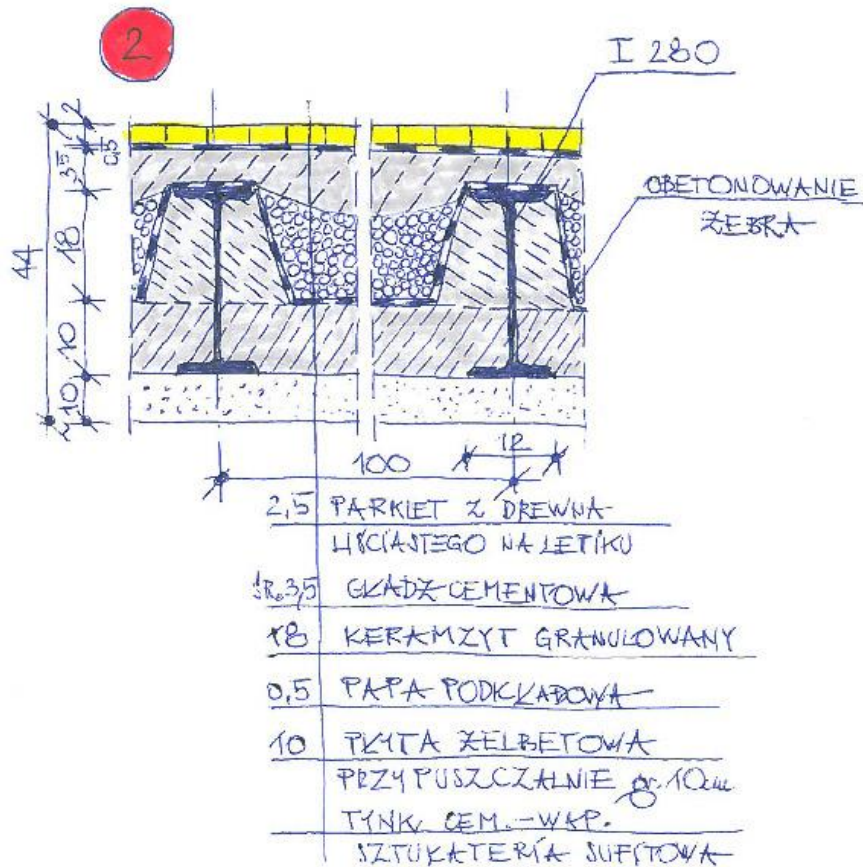 2
I 280
OBETONOWANIE
ŻEBRA
2
0,5
3,5
18
10
~10
44
12
100
2,5 PARKIET Z DREWNA
LIŚCIASTEGO NA LEPIKU
ŚR. 3,5 GŁADŹ CEMENTOWA
18 KERAMZYT GRANULOWANY
0,5 PAPA PODKŁADOWA
10 PŁYTA ŻELBETOWA
PRZYPUSZCZALNIE gr. 10cm
TYNK CEM.-WAP.
SZTUKATERIA SUFITOWA